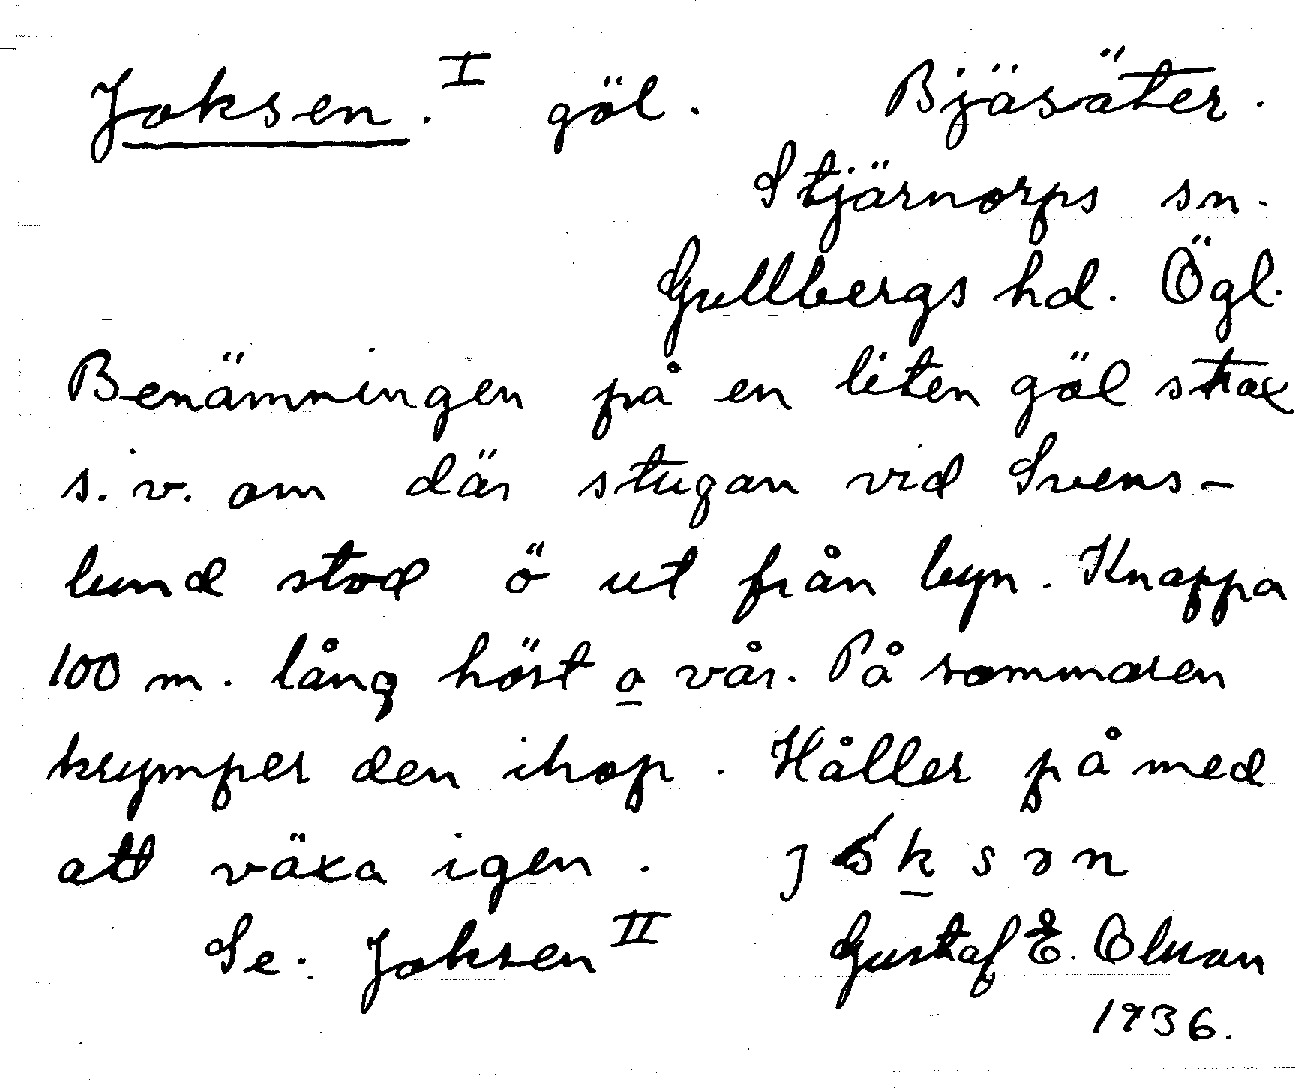 Joksen. I göl. Bjäsäter.
Stjärnorps sn.
Gullbergs hd. Ögl.
Benämningen på en liten göl strax
s.v. om där stugan vid Svens-
lund stod ö ut från byn. Knappa
100 m. lång höst o vår. På sommaren
krymper den ihop. Håller på med
att växa igen. jóksən
Se. Joksen II Gustaf E. Olsson
1936.